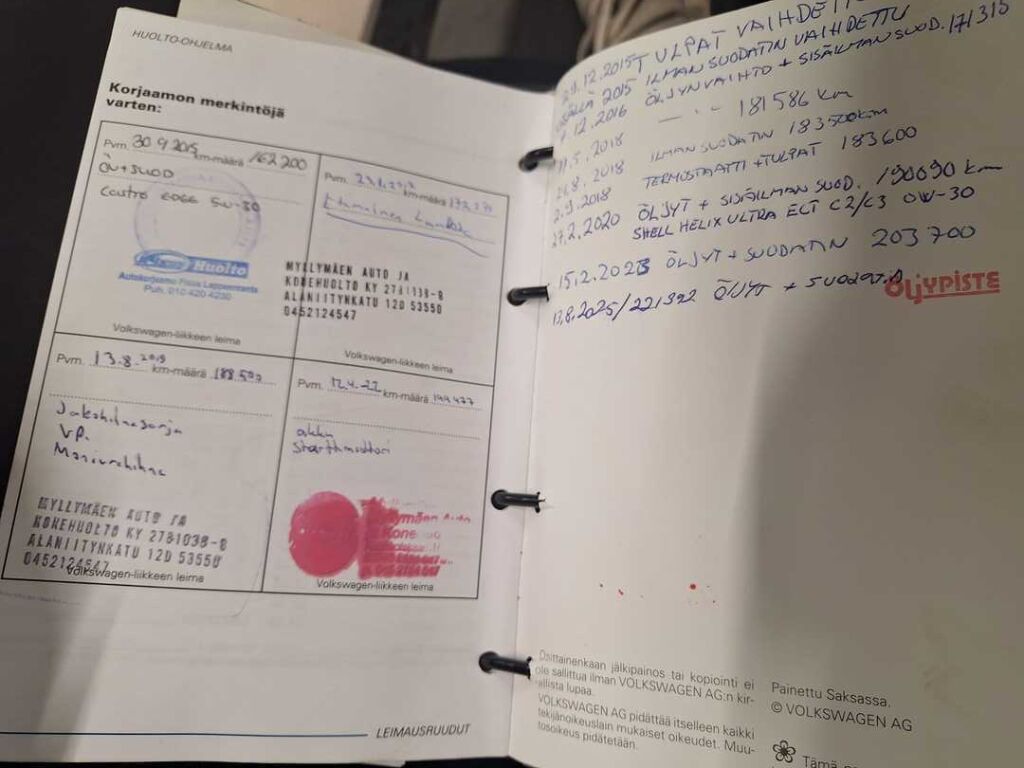 HUOLTO-OHJELMA
Korjaamon merkintöjä
varten:
Pvm. 30.9.2015 km-määrä 162 200
ÖV+SUOD
5W-30
Huolto
Autokorjaamo Lappeenranta
Puh. 010-420 4230
Volkswagen-liikkeen leima
Pvm. km-määrä
MYLLYMÄEN AUTO JA
KONEHUOLTO KY 2781038-8
ALANIITYNKATU 12D 53550
0452124547
Volkswagen-liikkeen leima
Pvm. 13.8.2019 km-määrä
Jakohihnasarja
VP.
MYLLYMÄEN AUTO JA
KONEHUOLTO KY 2781038-8
ALANIITYNKATU 12D 53550
0452124547
Volkswagen-liikkeen leima
Pvm. 12.4.22 km-määrä
akku
Starttimoottori
Myllymäen Auto
Kone
Volkswagen-liikkeen leima
LEIMAUSRUUDUT
12.2015 TULPAT
2015 ILMANSUODATIN VAIHDETTU
12.2016 ÖLJYNVAIHTO + SISÄILMANSUOD. 171315
5.2018 — " — 181586 km
8.2018 ILMANSUODATIN 183500km
2.9.2018 TERMOSTAATTI + TULPAT 183600
27.2.2020 ÖLJYT + SISÄILMAN SUOD. 190690 km
SHELL HELIX ULTRA ECT C2/C3 0W-30
15.2.2023 ÖLJYT + SUODATIN 203700
8.2025/221392 ÖLJYT + SUODATIN
ÖLJYPISTE
Osittainenkaan jälkipainos tai kopiointi ei
ole sallittua ilman VOLKSWAGEN AG:n kir-
jallista lupaa.
VOLKSWAGEN AG pidättää itselleen kaikki
tekijänoikeuslain mukaiset oikeudet. Muu-
tosoikeus pidätetään.
Painettu Saksassa.
© VOLKSWAGEN AG
Tämä